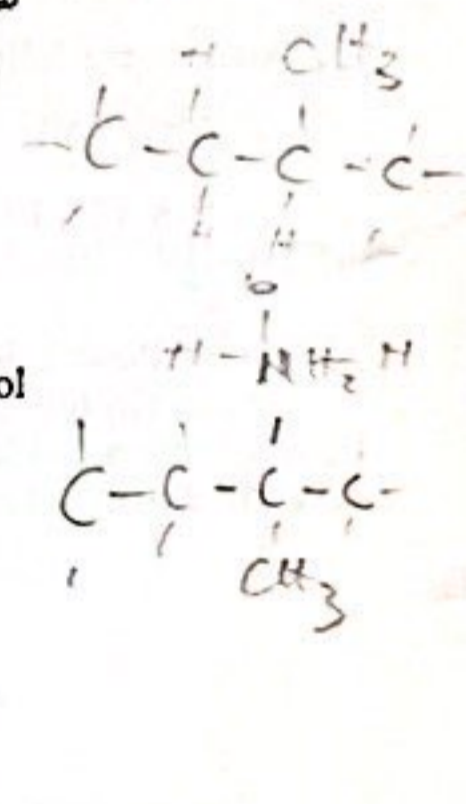 H CH3
- C - C - C - C -
H
H - NH2 H
ol
C - C - C - C -
CH3